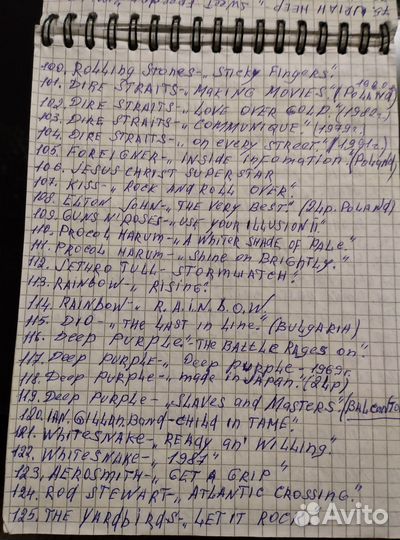 100. Rolling Stones-„Sticky Fingers"
101. DIRE STRAITS-„MAKING MOVIES"(Poland) 1980г.
102. DIRE STRAITS-„LOVE OVER GOLD."(1982г.)
103. DIRE STRAITS-„COMMUNIQUE."(1979г.)
104. DIRE STRAITS-„on every street."(1991г.)
105. FOREIGNER-„inside infomation.(Poland)
106. JESUS CHRIST SUPERSTAR
107. KISS-„ROCK AND ROLL OVER"
108. ELTON JOHN-„THE VERY BEST."(2LP. POLAND)
109. GUNS N'ROSES-„USE YOUR ILLUSION II"
110. PROCOL HARUM-„A WHITER SHADE OF PALE."
111. PROCOL HARUM-„Shine on BRIGHTLY."
112. JETHRO TULL-STORMWATCH."
113. RAINBOW-„RISING."
114. RAINBOW-„R.A.i.N.B.O.W.
115. DIO-„THE LAST in Line."(BULGARIA)
116. Deep PURPLE."THE BATTLE RAGES on."
117. Deep PURPLE-„Deep purple-1969г.
118. Deep Purple-„made in Japan."(2LP)
119. Deep PURPLE-„SLAVES and MASTERS"(
120. IAN. GILLAN. Band-CHILD in TAME."
121. WHITESNAKE-„READY an' WILLING."
122. WHITESNAKE-„1987"
123. AEROSMITH-„GET A GRIP"
124. ROD STEWART-„ATLANTIC CROSSING."
125. THE YARDbirds-„LET IT ROCK
Avito